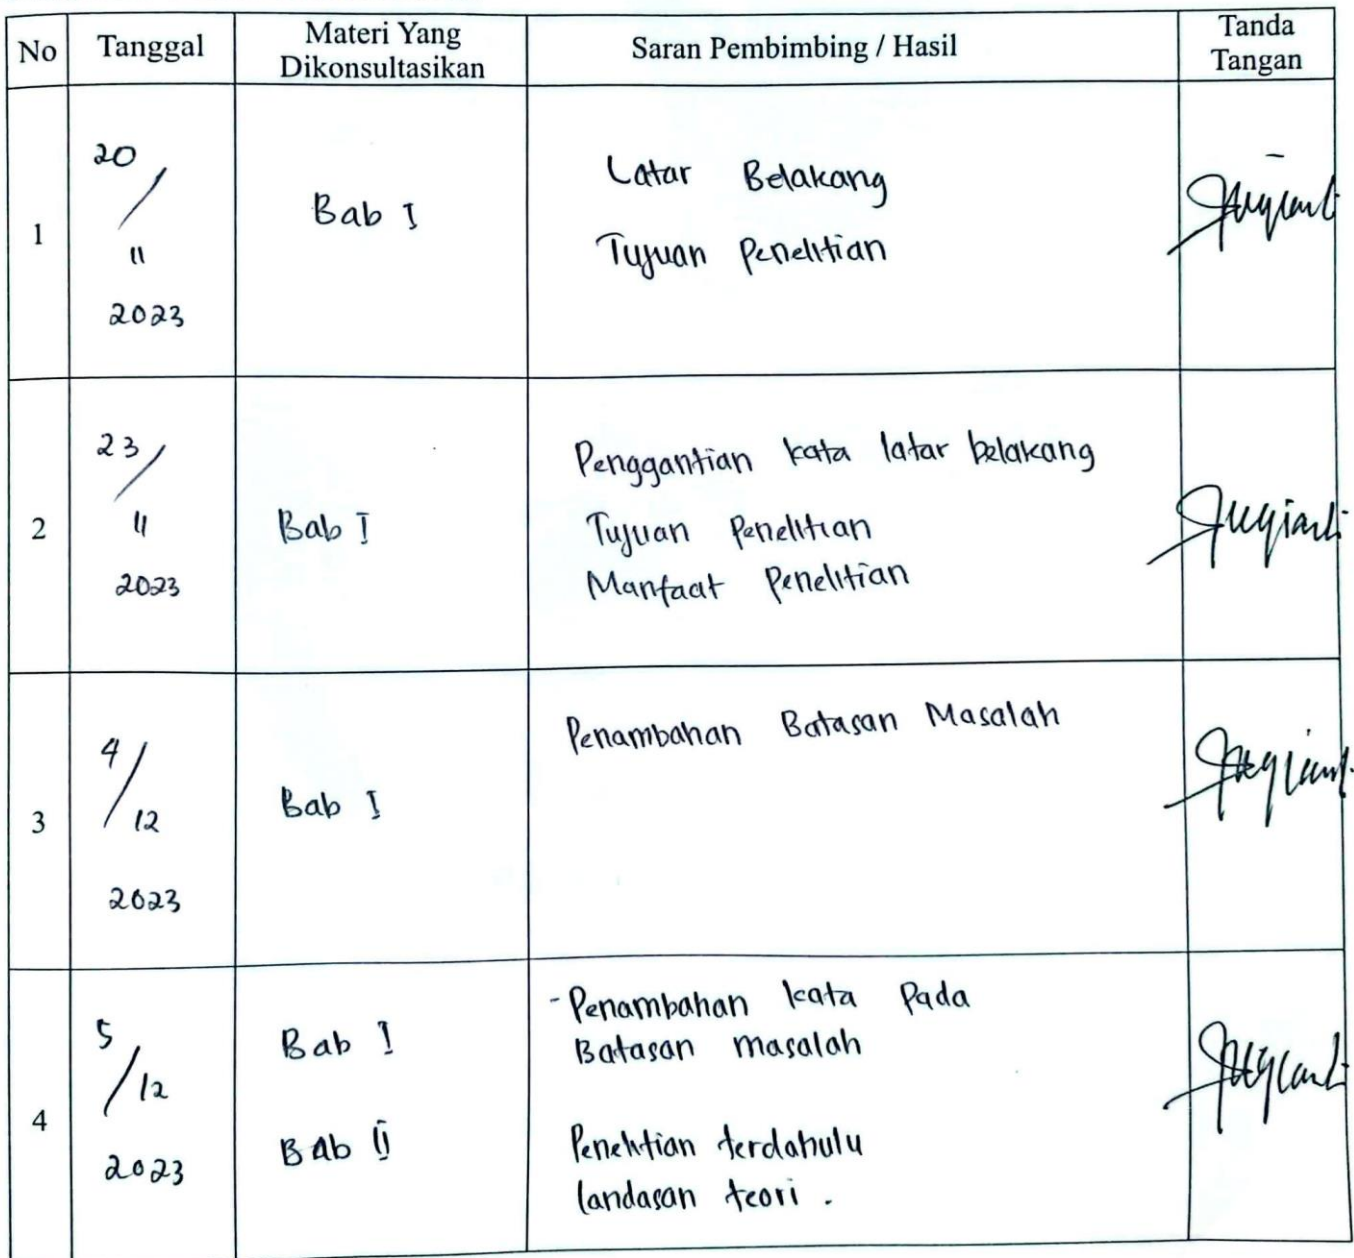 No Tanggal Materi Yang Dikonsultasikan Saran Pembimbing / Hasil Tanda Tangan
1
20/
11
2023
Bab I
Latar Belakang
Tujuan Penelitian
2
23/
11
2023
Bab I
Penggantian kata latar belakang
Tujuan Penelitian
Manfaat Penelitian
3
4/12
2023
Bab I
Penambahan Batasan Masalah
4
5/12
2023
Bab I
Bab II
-Penambahan kata Pada
Batasan masalah
Penelitian terdahulu
landasan teori .